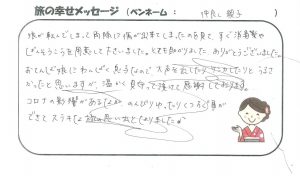 旅の幸せメッセージ (ペンネーム： 仲良し親子 )
娘が転んでしまって両膝に傷が出来てしまったのを見て すぐ消毒液や
ばんそうこうを用意して下さいました。とても助かりました。ありがとうございました。
おてんば娘にわんぱく息子なので大声を出したりケンカしたりとうるさ
かったと思いますが、温かく見守って頂けて感謝しております。
コロナの影響がある中 のんびりゆったりくつろぐ事が
できて ステキな旅の思い出となりました